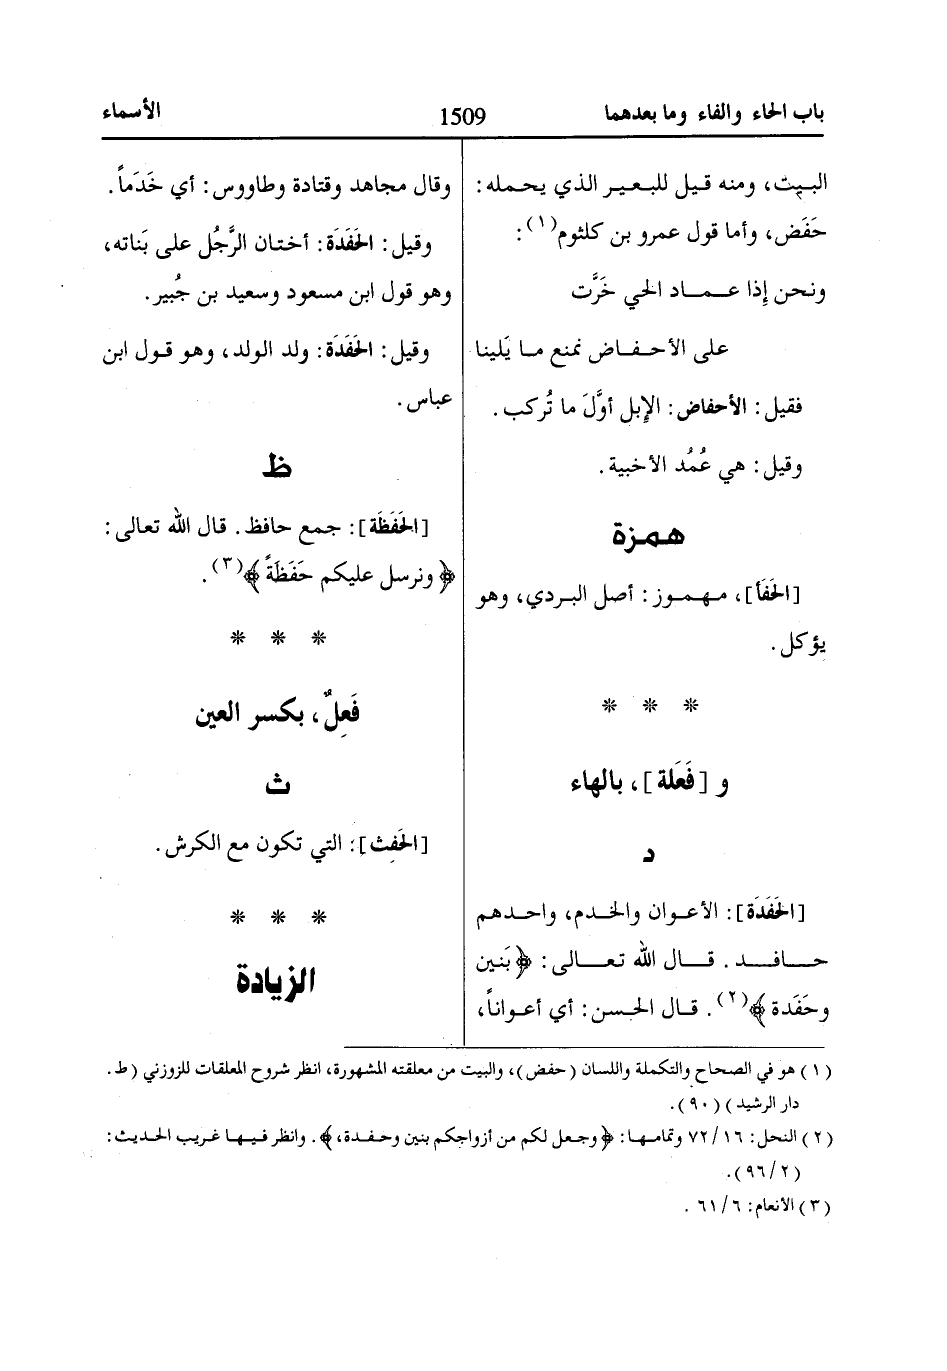 باب الحاء والفاء وما بعدهما
1509
الأسماء
البيت، ومنه قيل للبعير الذي يحمله:
حَفَض، وأما قول عمرو بن كلثوم(١):
ونحن إذا عماد الحي خَرَّت
على الأحفاض نمنع ما يَلينا
فقيل: الأحفاض: الإبل أوَّلَ ما تُركب.
وقيل: هي عُمُد الأخبية.
همزة
[الحَفَأ]، مهموز: أصل البردي، وهو
يؤكل.
* * *
و [فَعَلة]، بالهاء
د
[الحَفَدَة]: الأعوان والخدم، واحدهم
حافد. قال الله تعالى: ﴿بَنين
وحَفَدة﴾(٢). قال الحسن: أي أعواناً،
وقال مجاهد وقتادة وطاووس: أي خَدَماً.
وقيل: الحَفَدَة: أختان الرَّجُل على بَناته،
وهو قول ابن مسعود وسعيد بن جُبير.
وقيل: الحَفَدَة: ولد الولد، وهو قول ابن
عباس.
ظ
[الحَفَظَة]: جمع حافظ. قال الله تعالى:
﴿ونرسل عليكم حَفَظَةً﴾(٣).
* * *
فَعِلٌ، بكسر العين
ث
[الحَفِث]: التي تكون مع الكرش.
* * *
الزيادة
(١) هو في الصحاح والتكملة واللسان (حفض)، والبيت من معلقته المشهورة، انظر شروح المعلقات للزوزني (ط.
دار الرشيد) (٩٠).
(٢) النحل: ١٦/ ٧٢ وتمامها: ﴿وجعل لكم من أزواجكم بنين وحفدة،﴾. وانظر فيها غريب الحديث:
(٢/ ٩٦).
(٣) الأنعام: ٦/ ٦١.